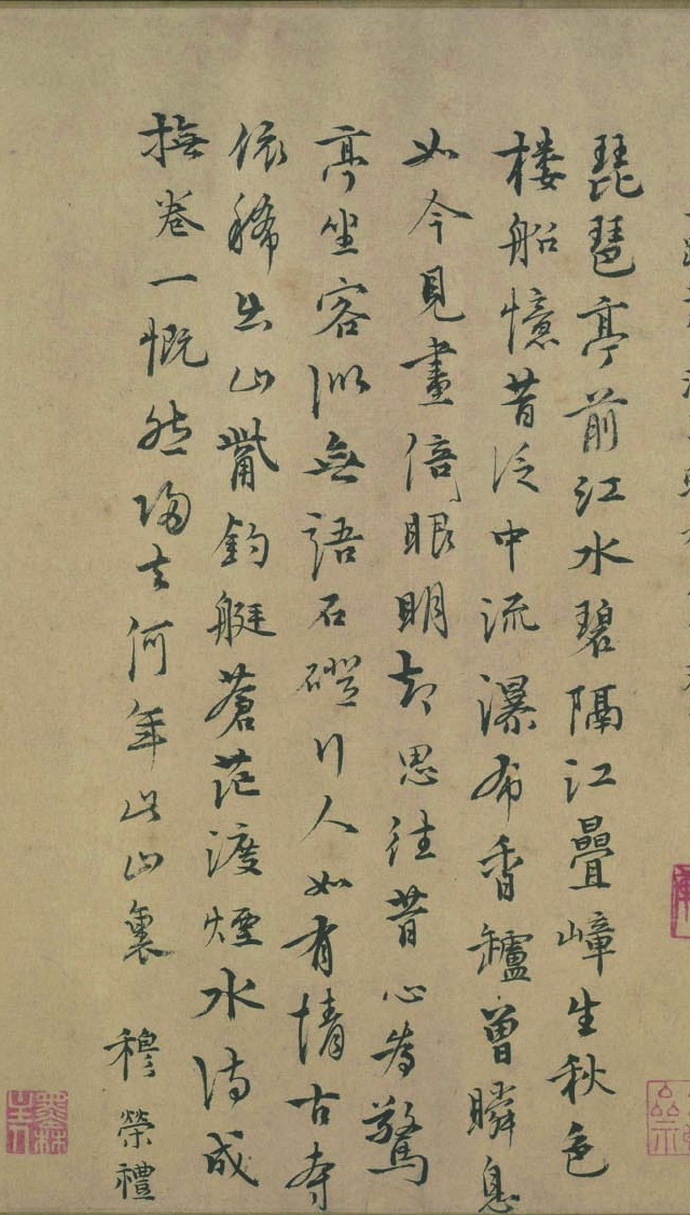 琵琶亭前江水碧隔江疊嶂生秋色
楼船憶昔泛中流瀑布香罏曾瞬息
如今見畫倍眼明却思往昔心為驚
亭坐客似無語石磴行人如有情古寺
依稀出山觜釣艇蒼茫渡煙水詩成
撫卷一慨然歸去何年此山裏 穆榮禮